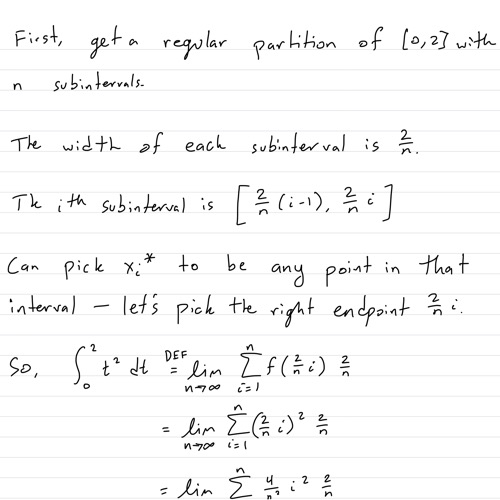 First, get a regular partition of [0,2] with
n subintervals.
The width of each subinterval is 2/n.
The ith subinterval is [2/n (i-1), 2/n i]
Can pick xᵢ* to be any point in that
interval – let's pick the right endpoint 2/n i.
So, ∫₀² t² dt DEF= lim n→∞ Σ i=1 n f(2/n i) 2/n
= lim n→∞ Σ i=1 n (2/n i)² 2/n
= lim Σ n 4/n² i² 2/n